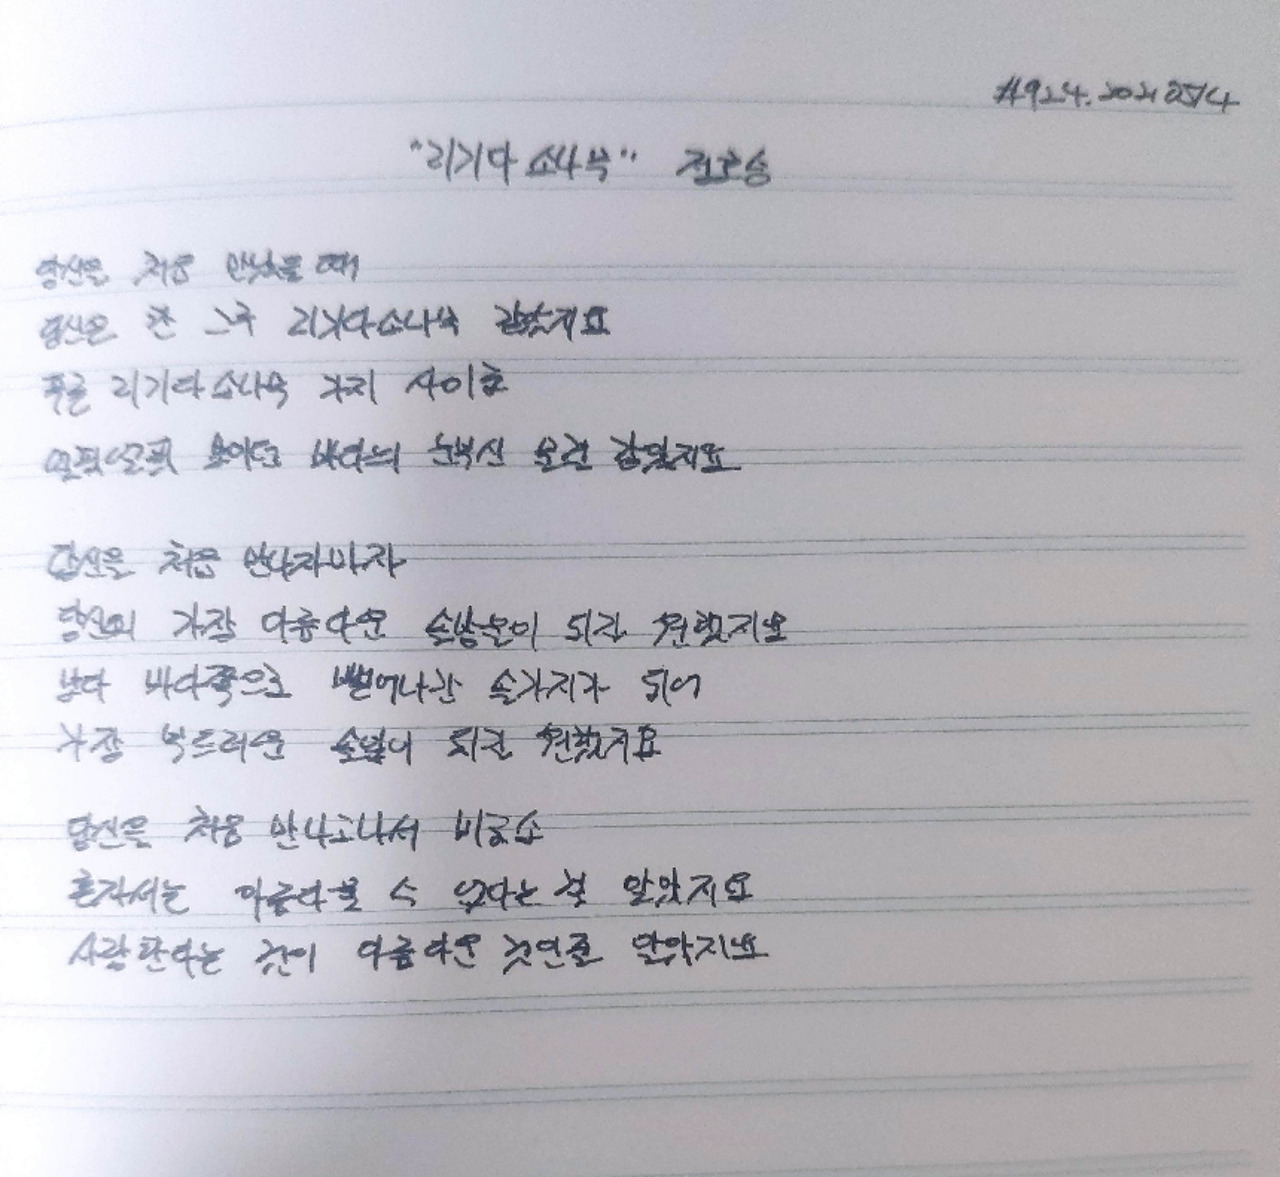 #924. 2021 0514
"리기다 소나무" 정호승
당신을 처음 만났을 때
당신은 한 그루 리기다소나무 같았지요
푸른 리기다소나무 가지 사이로
얼핏얼핏 보이던 바다의 눈부신 물결 같았지요
당신을 처음 만나자마자
당신의 가장 아름다운 솔방울이 되길 원했지요
보다 바다쪽으로 뻗어나간 솔가지가 되어
가장 부드러운 솔잎이 되길 원했지요
당신을 처음 만나고나서 비로소
혼자서는 아름다울 수 없다는 걸 알았지요
사랑한다는 것이 아름다운 것인줄 알았지요